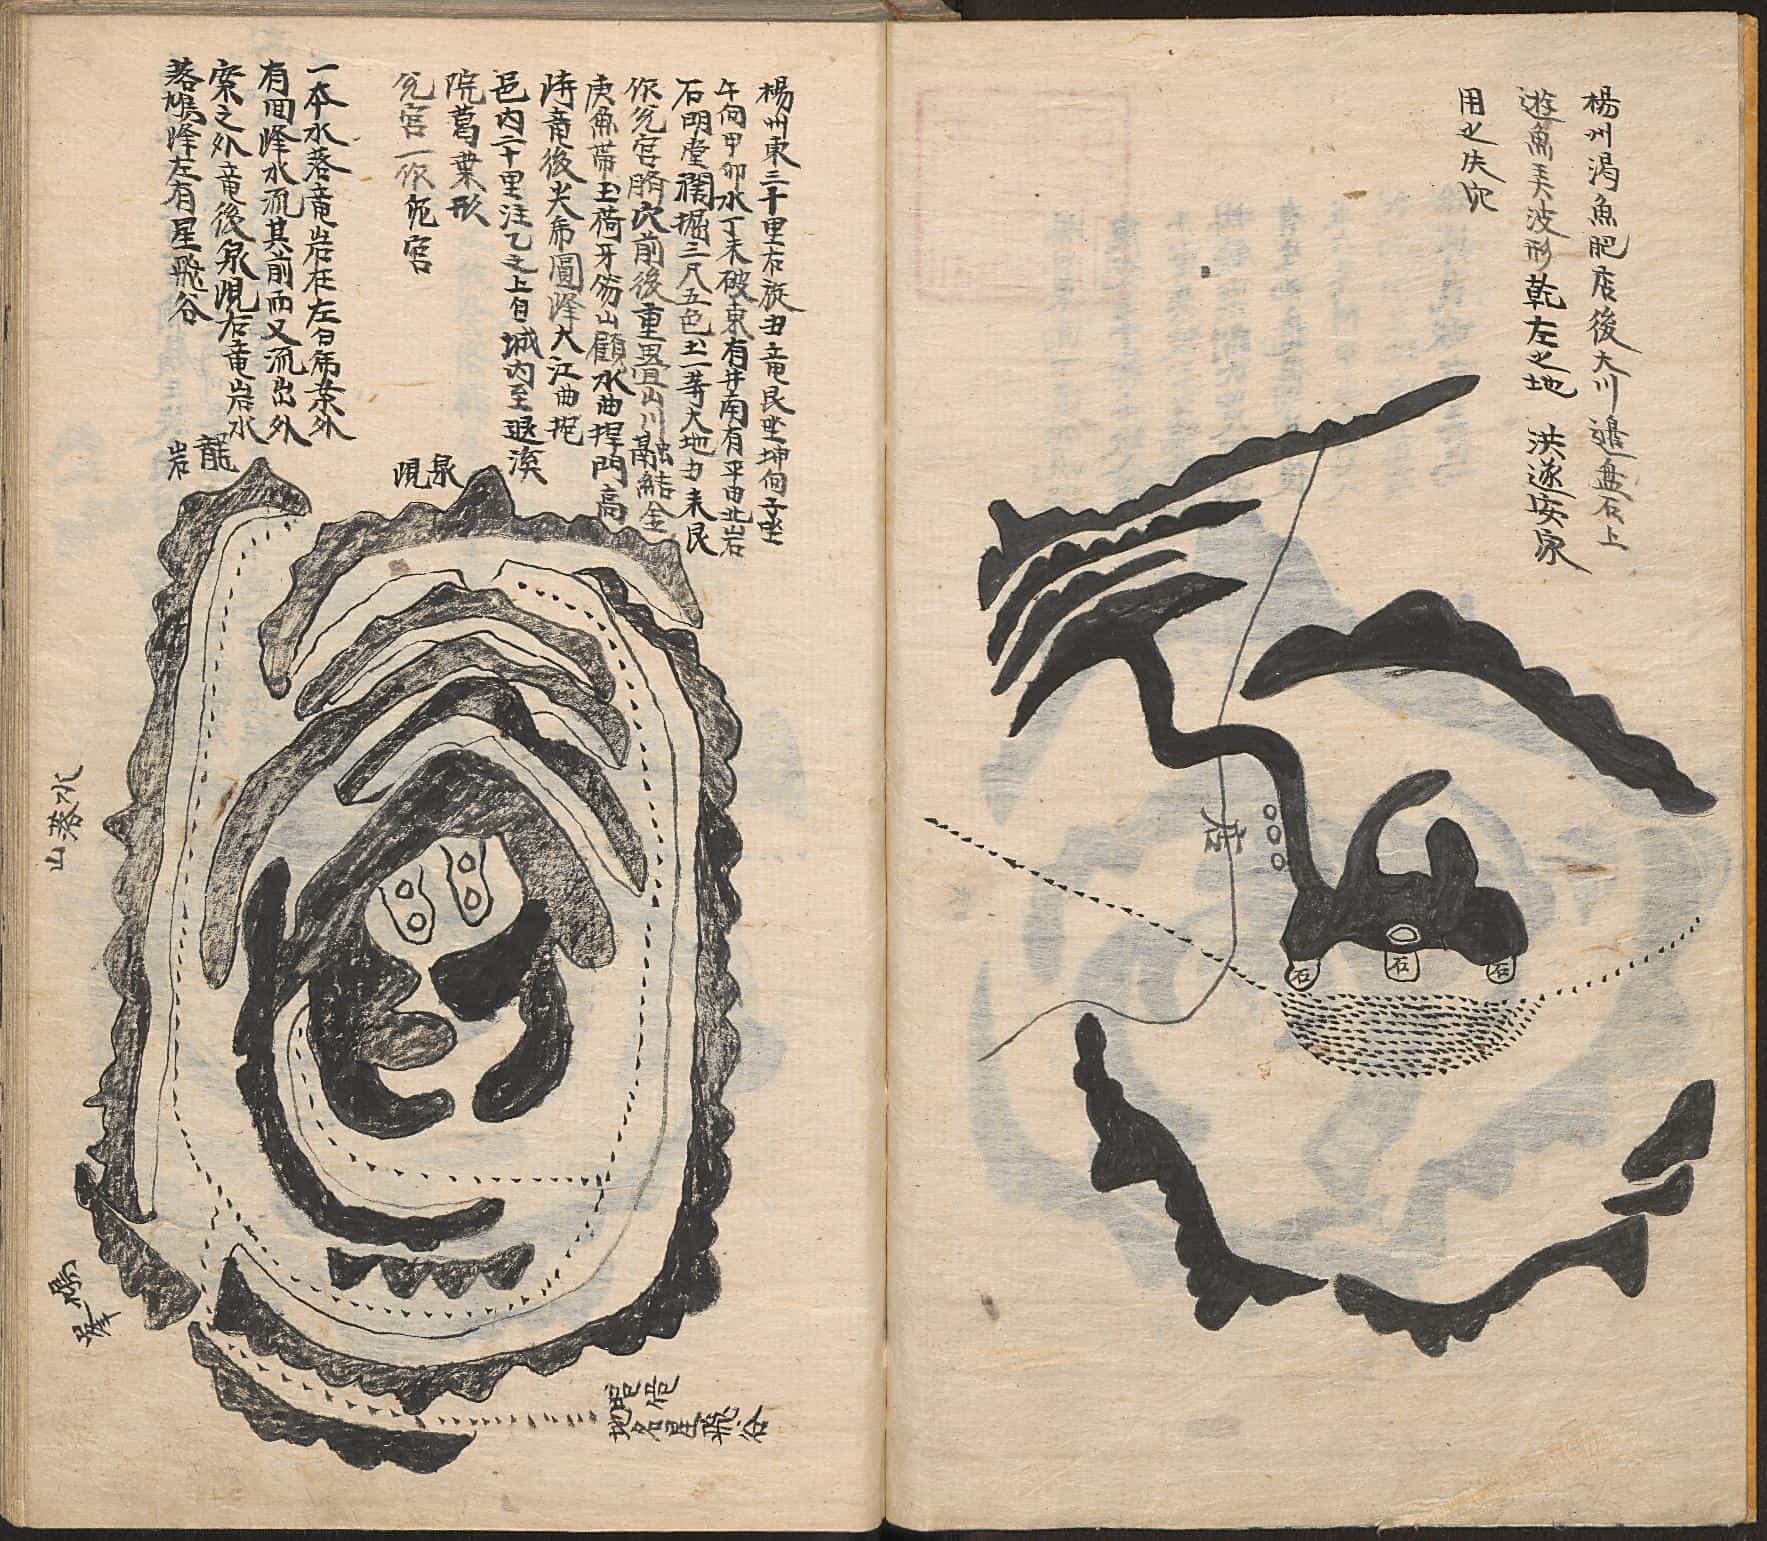 楊州渴魚肥店後大川邊盤石上
遊魚美波形乾左之地 洪遂安家
用之失穴
店
石
石
石
楊州東三十里右旋丑竜艮坐坤向子坐
午向甲卯水丁未破東有井南有平田北岩
石明堂穴掘三尺五色土一等大地力未艮
作兌宮臍穴前後重疊山川融結金
庚魚帶土荷牙笏山顧水曲捍門高
峙竜後尖帝圓峰大江曲抱
邑內二十里注乙之上自城內至退溪
院葛葉形
兌宮一作
一本水落竜岩在左白帝案外
有回峰水流其前而又流出外
案之外竜後泉峴右竜岩水
落鳩峰左有星飛谷
龍岩
泉峴
水落山
鳩峰
地名星飛谷